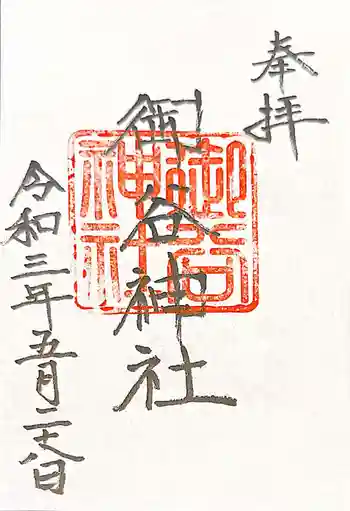 奉拝
御谷神社
令和三年五月二六日
御谷
神社